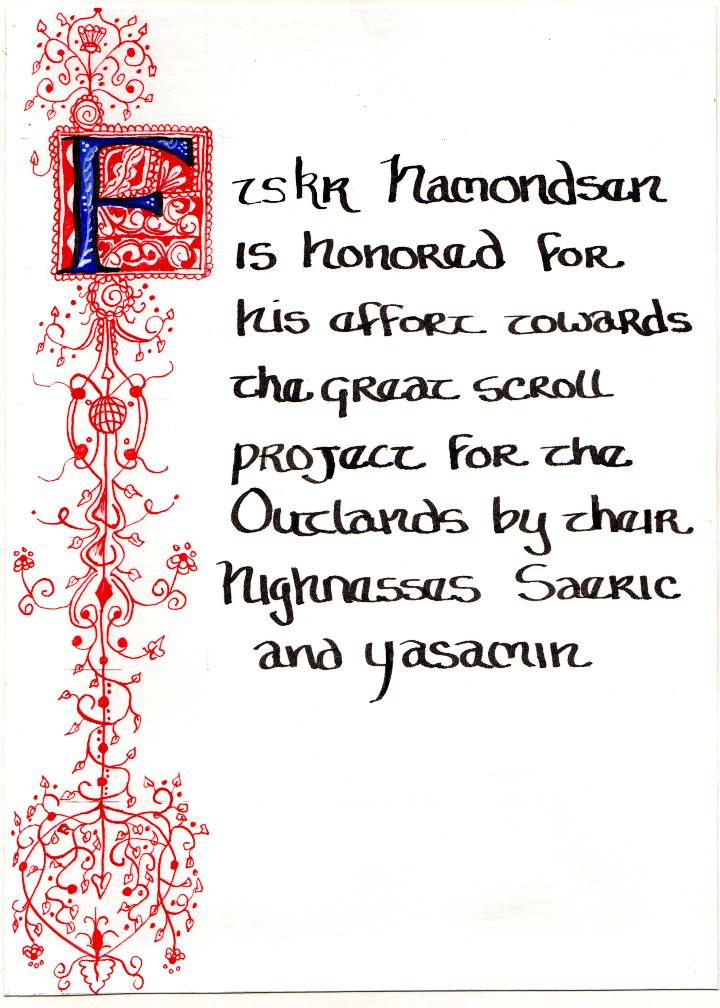 Fiskr Hamondsen
is honored for
his effort towards
the great scroll
project for the
Outlands by their
Highnesses Saeric
and Yasamin